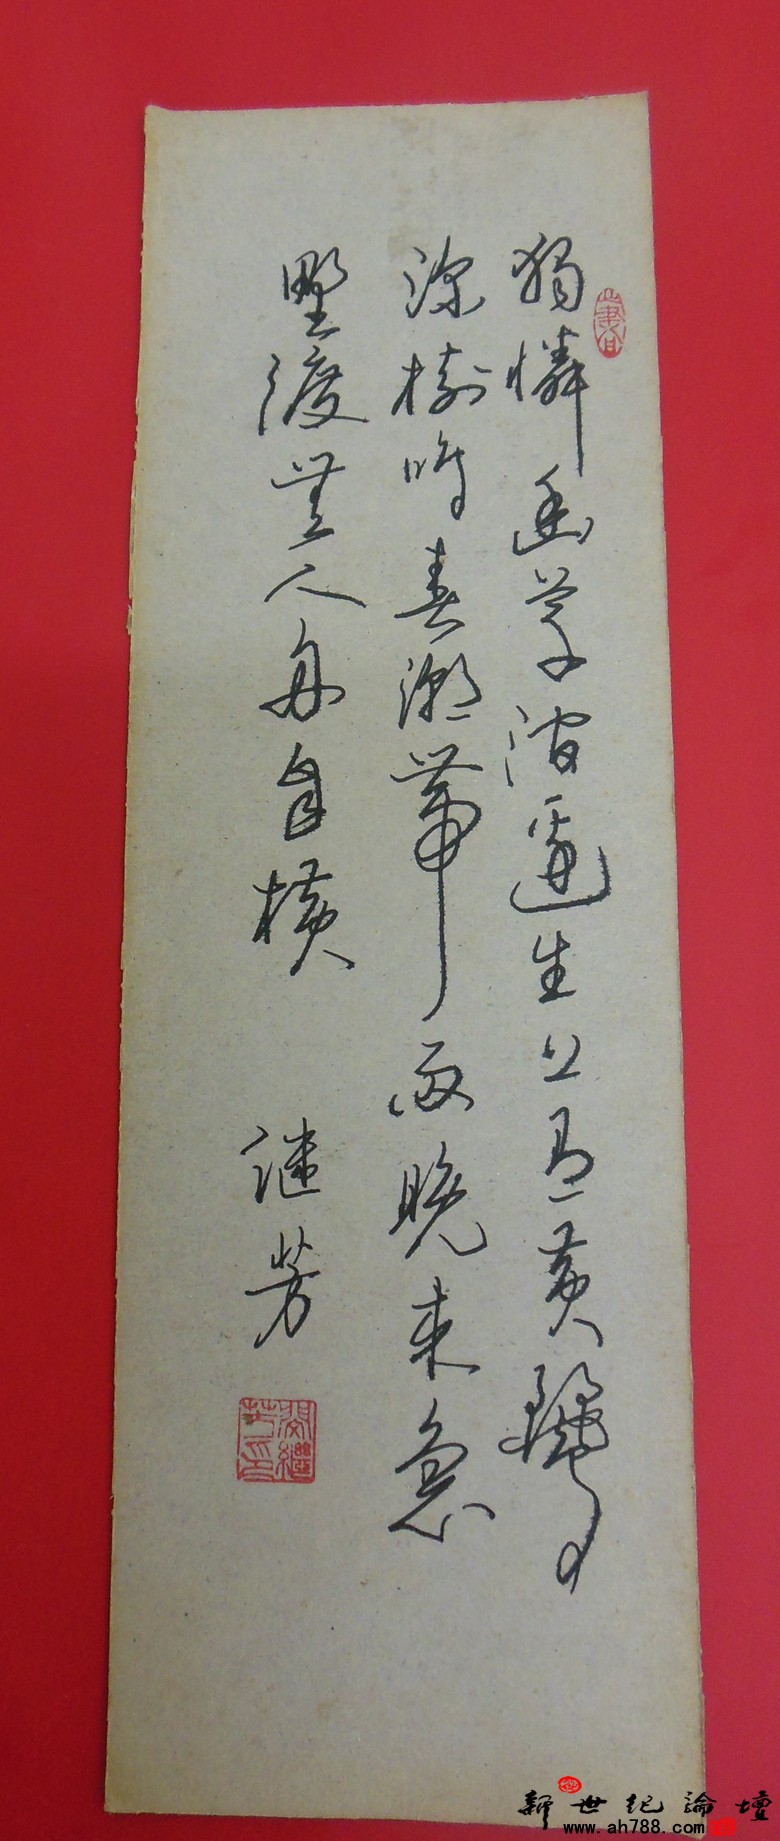 獨憐幽草澗邊生上有黃鸝
深樹鳴春潮帶雨晚來急
野渡無人舟自橫
继芳
新世纪論壇
www.ah788.com